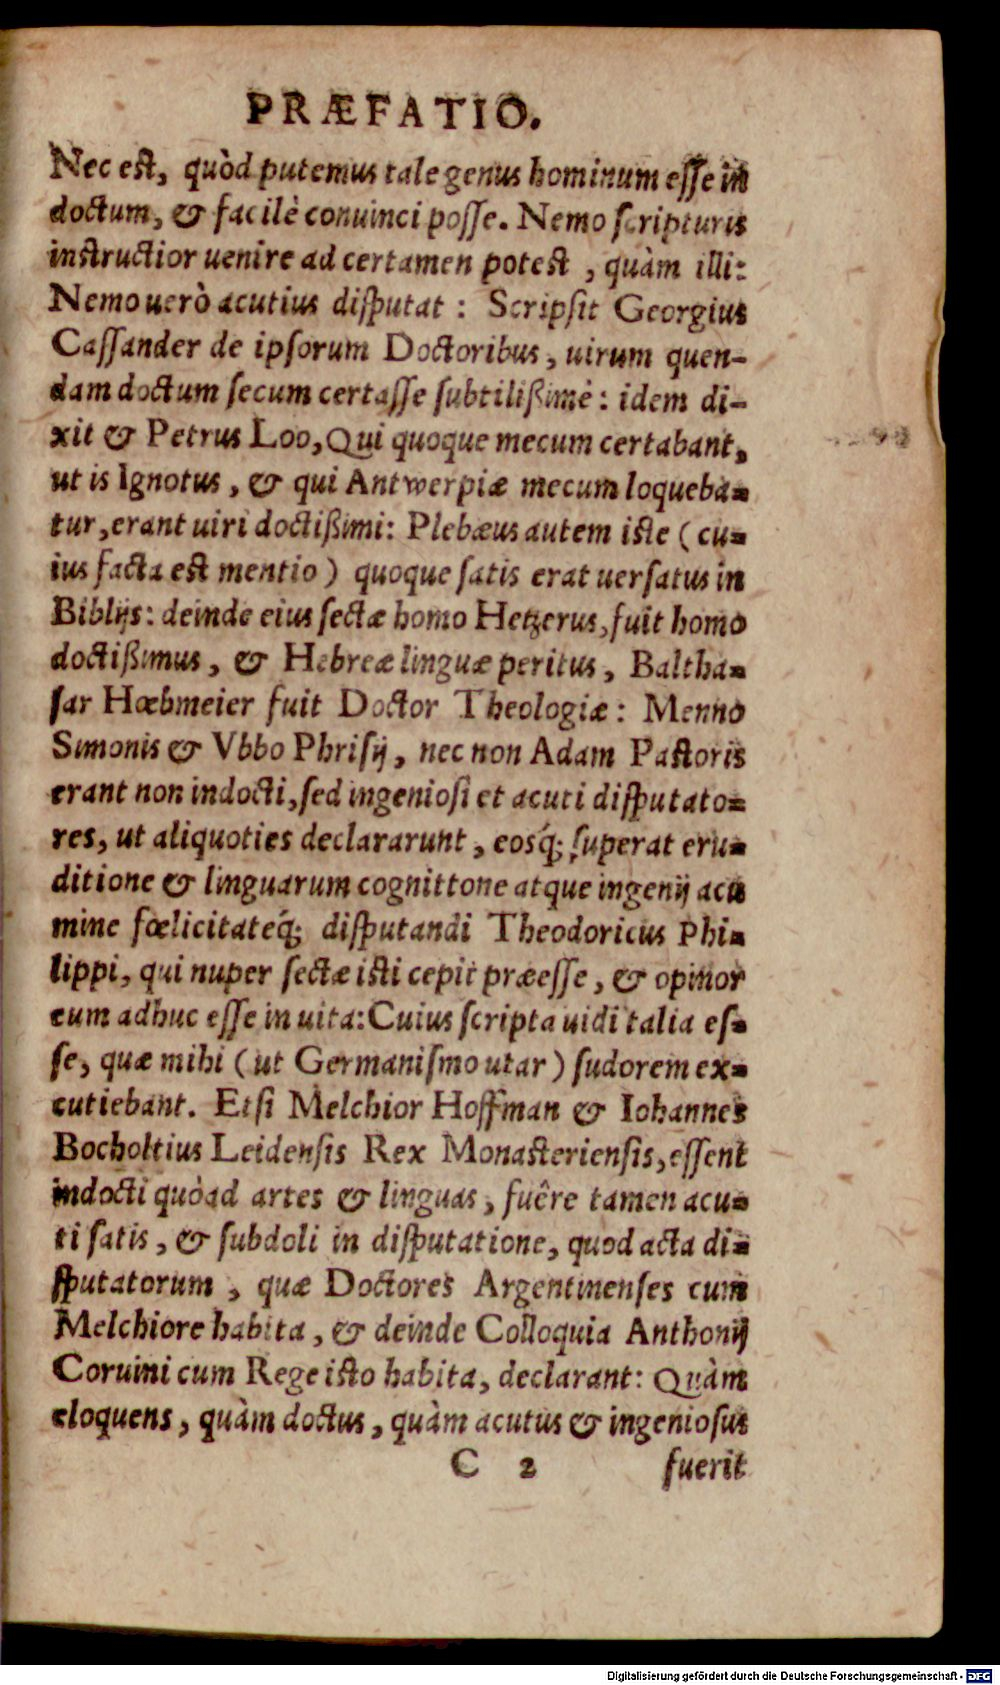 PRÆFATIO.
Nec est, quòd putemus tale genus hominum esse in
doctum, & facilè conuinci posse. Nemo scripturis
instructior uenire ad certamen potest, quàm illi:
Nemo uerò acutius disputat: Scripsit Georgius
Cassander de ipsorum Doctoribus, uirum quen-
dam doctum secum certasse subtilißimè: idem di-
xit & Petrus Loo, Qui quoque mecum certabant,
ut is Ignotus, & qui Antwerpiæ mecum loqueba-
tur, erant uiri doctißimi: Plebæus autem iste (cu-
ius facta est mentio) quoque satis erat uersatus in
Biblijs: deinde eius sectæ homo Hetzerus, fuit homo
doctißimus, & Hebreæ linguæ peritus, Baltha-
sar Hœbmeier fuit Doctor Theologiæ: Menno
Simonis & Vbbo Phrisij, nec non Adam Pastoris
erant non indocti, sed ingeniosi et acuti disputato-
res, ut aliquoties declararunt, eosq́; superat eru-
ditione & linguarum cognittone atque ingenij acu
mine fœlicitateq́; disputandi Theodoricus Phi-
lippi, qui nuper sectæ isti cepit præesse, & opinor
eum adhuc esse in uita: Cuius scripta uidi talia es-
se, quæ mihi (ut Germanismo utar) sudorem ex-
cutiebant. Etsi Melchior Hoffman & Iohannes
Bocholtius Leidensis Rex Monasteriensis, essent
indocti quòad artes & linguas, fuêre tamen acu-
ti satis, & subdoli in disputatione, quod acta di-
sputatorum, quæ Doctores Argentinenses cum
Melchiore habita, & deinde Colloquia Anthonij
Coruini cum Rege isto habita, declarant: Quàm
eloquens, quàm doctus, quàm acutus & ingeniosus
C 2 fuerit
Digitalisierung gefördert durch die Deutsche Forschungsgemeinschaft - DFG